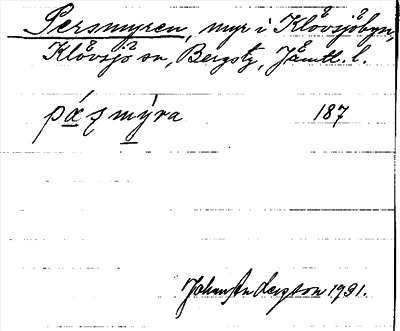 Persmyren, myr i Klövsjöbyn,
Klövsjö sn, Bergstg, Jämtl. l.
pá̱ʂm̱ýra 187
Johan Anderson 1931.